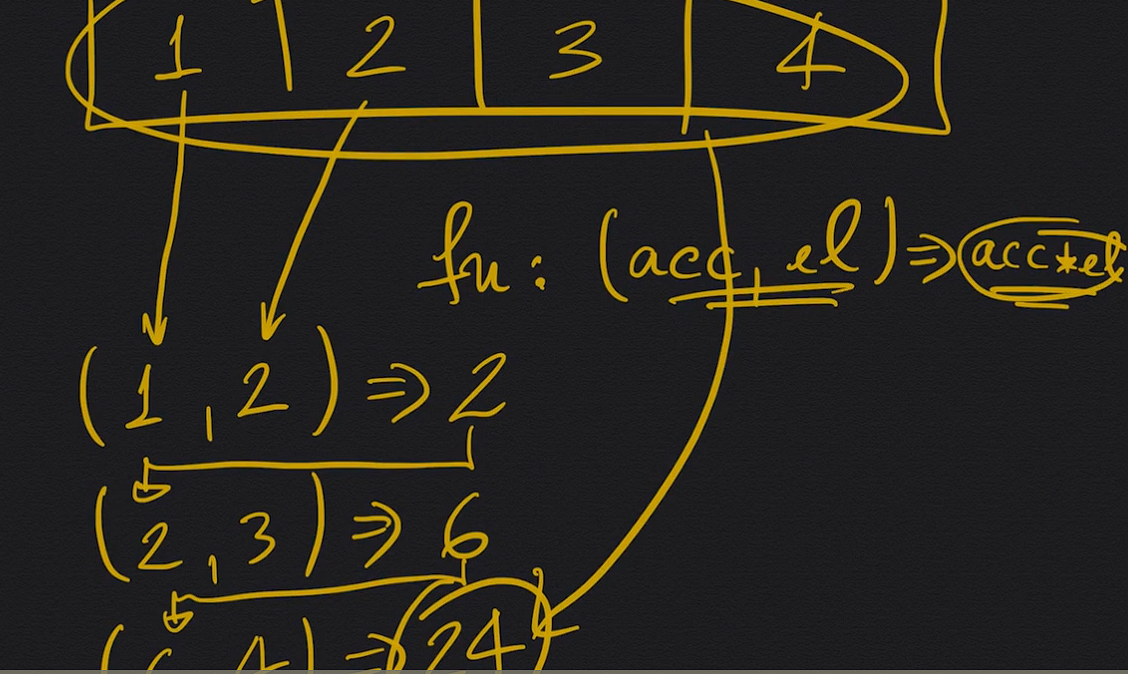 1 2 3 4
fn: (acc, el) => acc*el
(1, 2) => 2
(2, 3) => 6
(6, 4) => 24